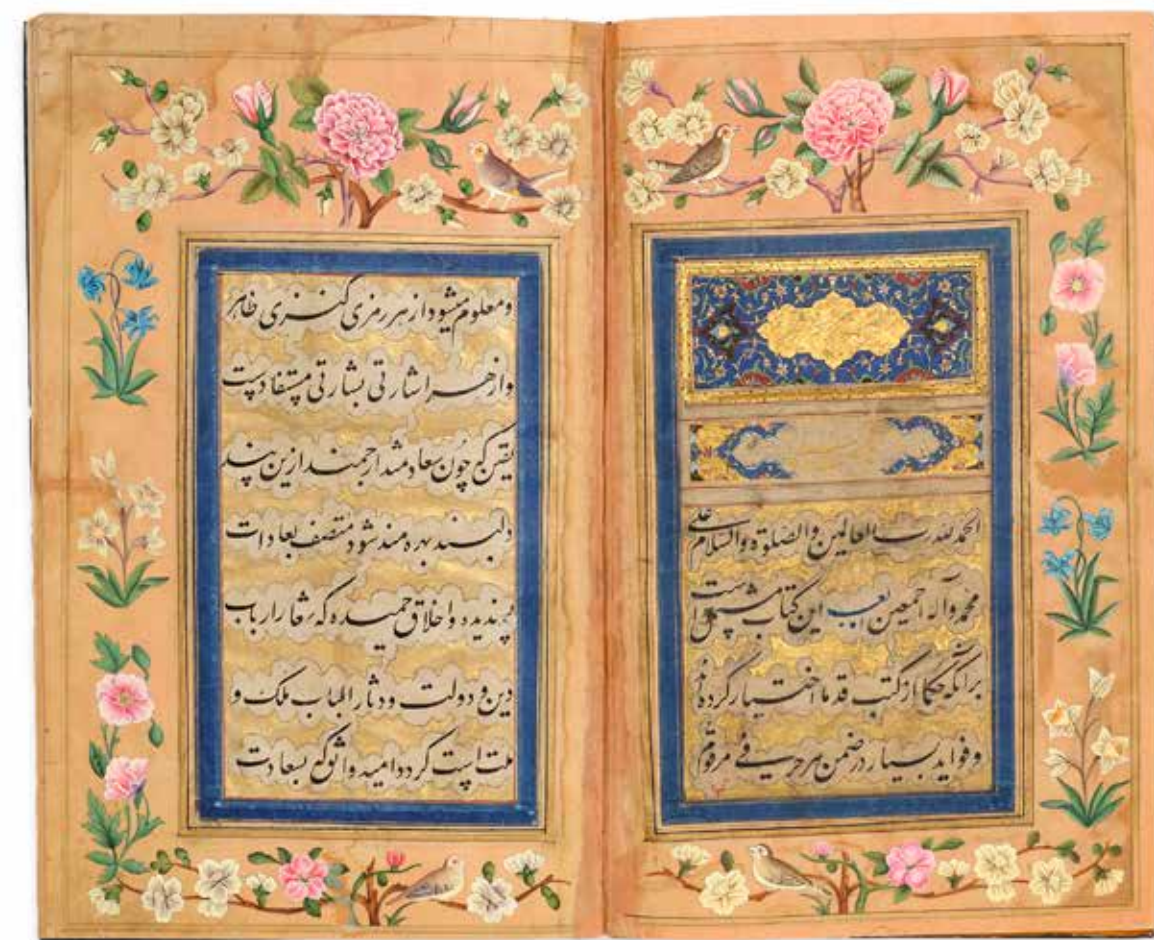 الحمد لله رب العالمین والصلوة والسلام علی
محمد وآله اجمعین بعد این کتاب مشتمل است
برانکه حکما از کتب قدما اختیار کرده اند
و فواید بسیار در ضمن هر حرفی مرقوم
و معلوم میشود از هر رمزی کنزی ظاهر
و از هر اشارتی بشارتی مستفاد است
یقین که چون سعادتمند ارجمند ازین پند
دلبند بهره مند شود متصف بعادات
پسندیده و اخلاق حمیده که شعار ارباب
دین و دولت و دثار الباب ملک و
ملت است کردد امید واثق که بسعادت